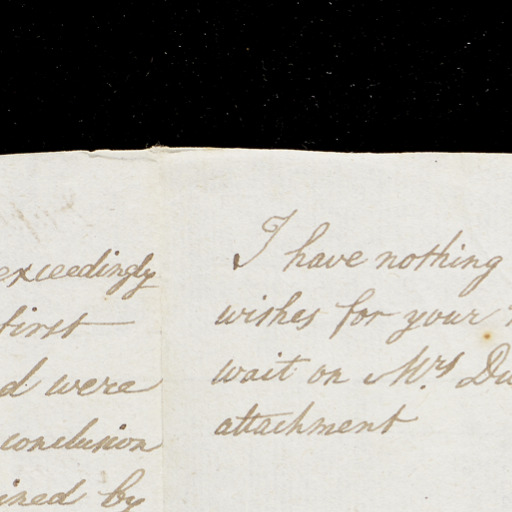 exceedingly
first
were
conclusion
by
I have nothing
wishes for your
wait on Mrs
attachment